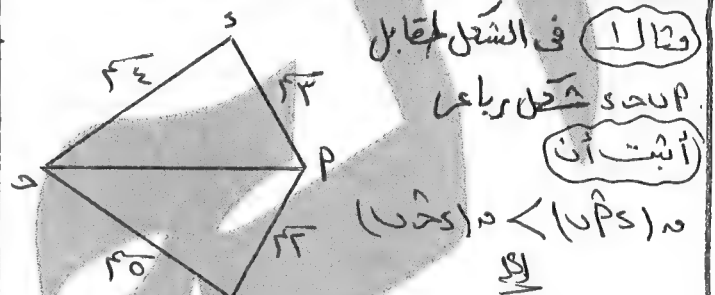 مثال ١ فى الشكل المقابل
أ ب ح د شكل رباعى
أثبت أن
ق (د أ ب) > ق (د ح ب)
الحل
د
٤سم
٣سم
ح
أ
٥سم
٢سم